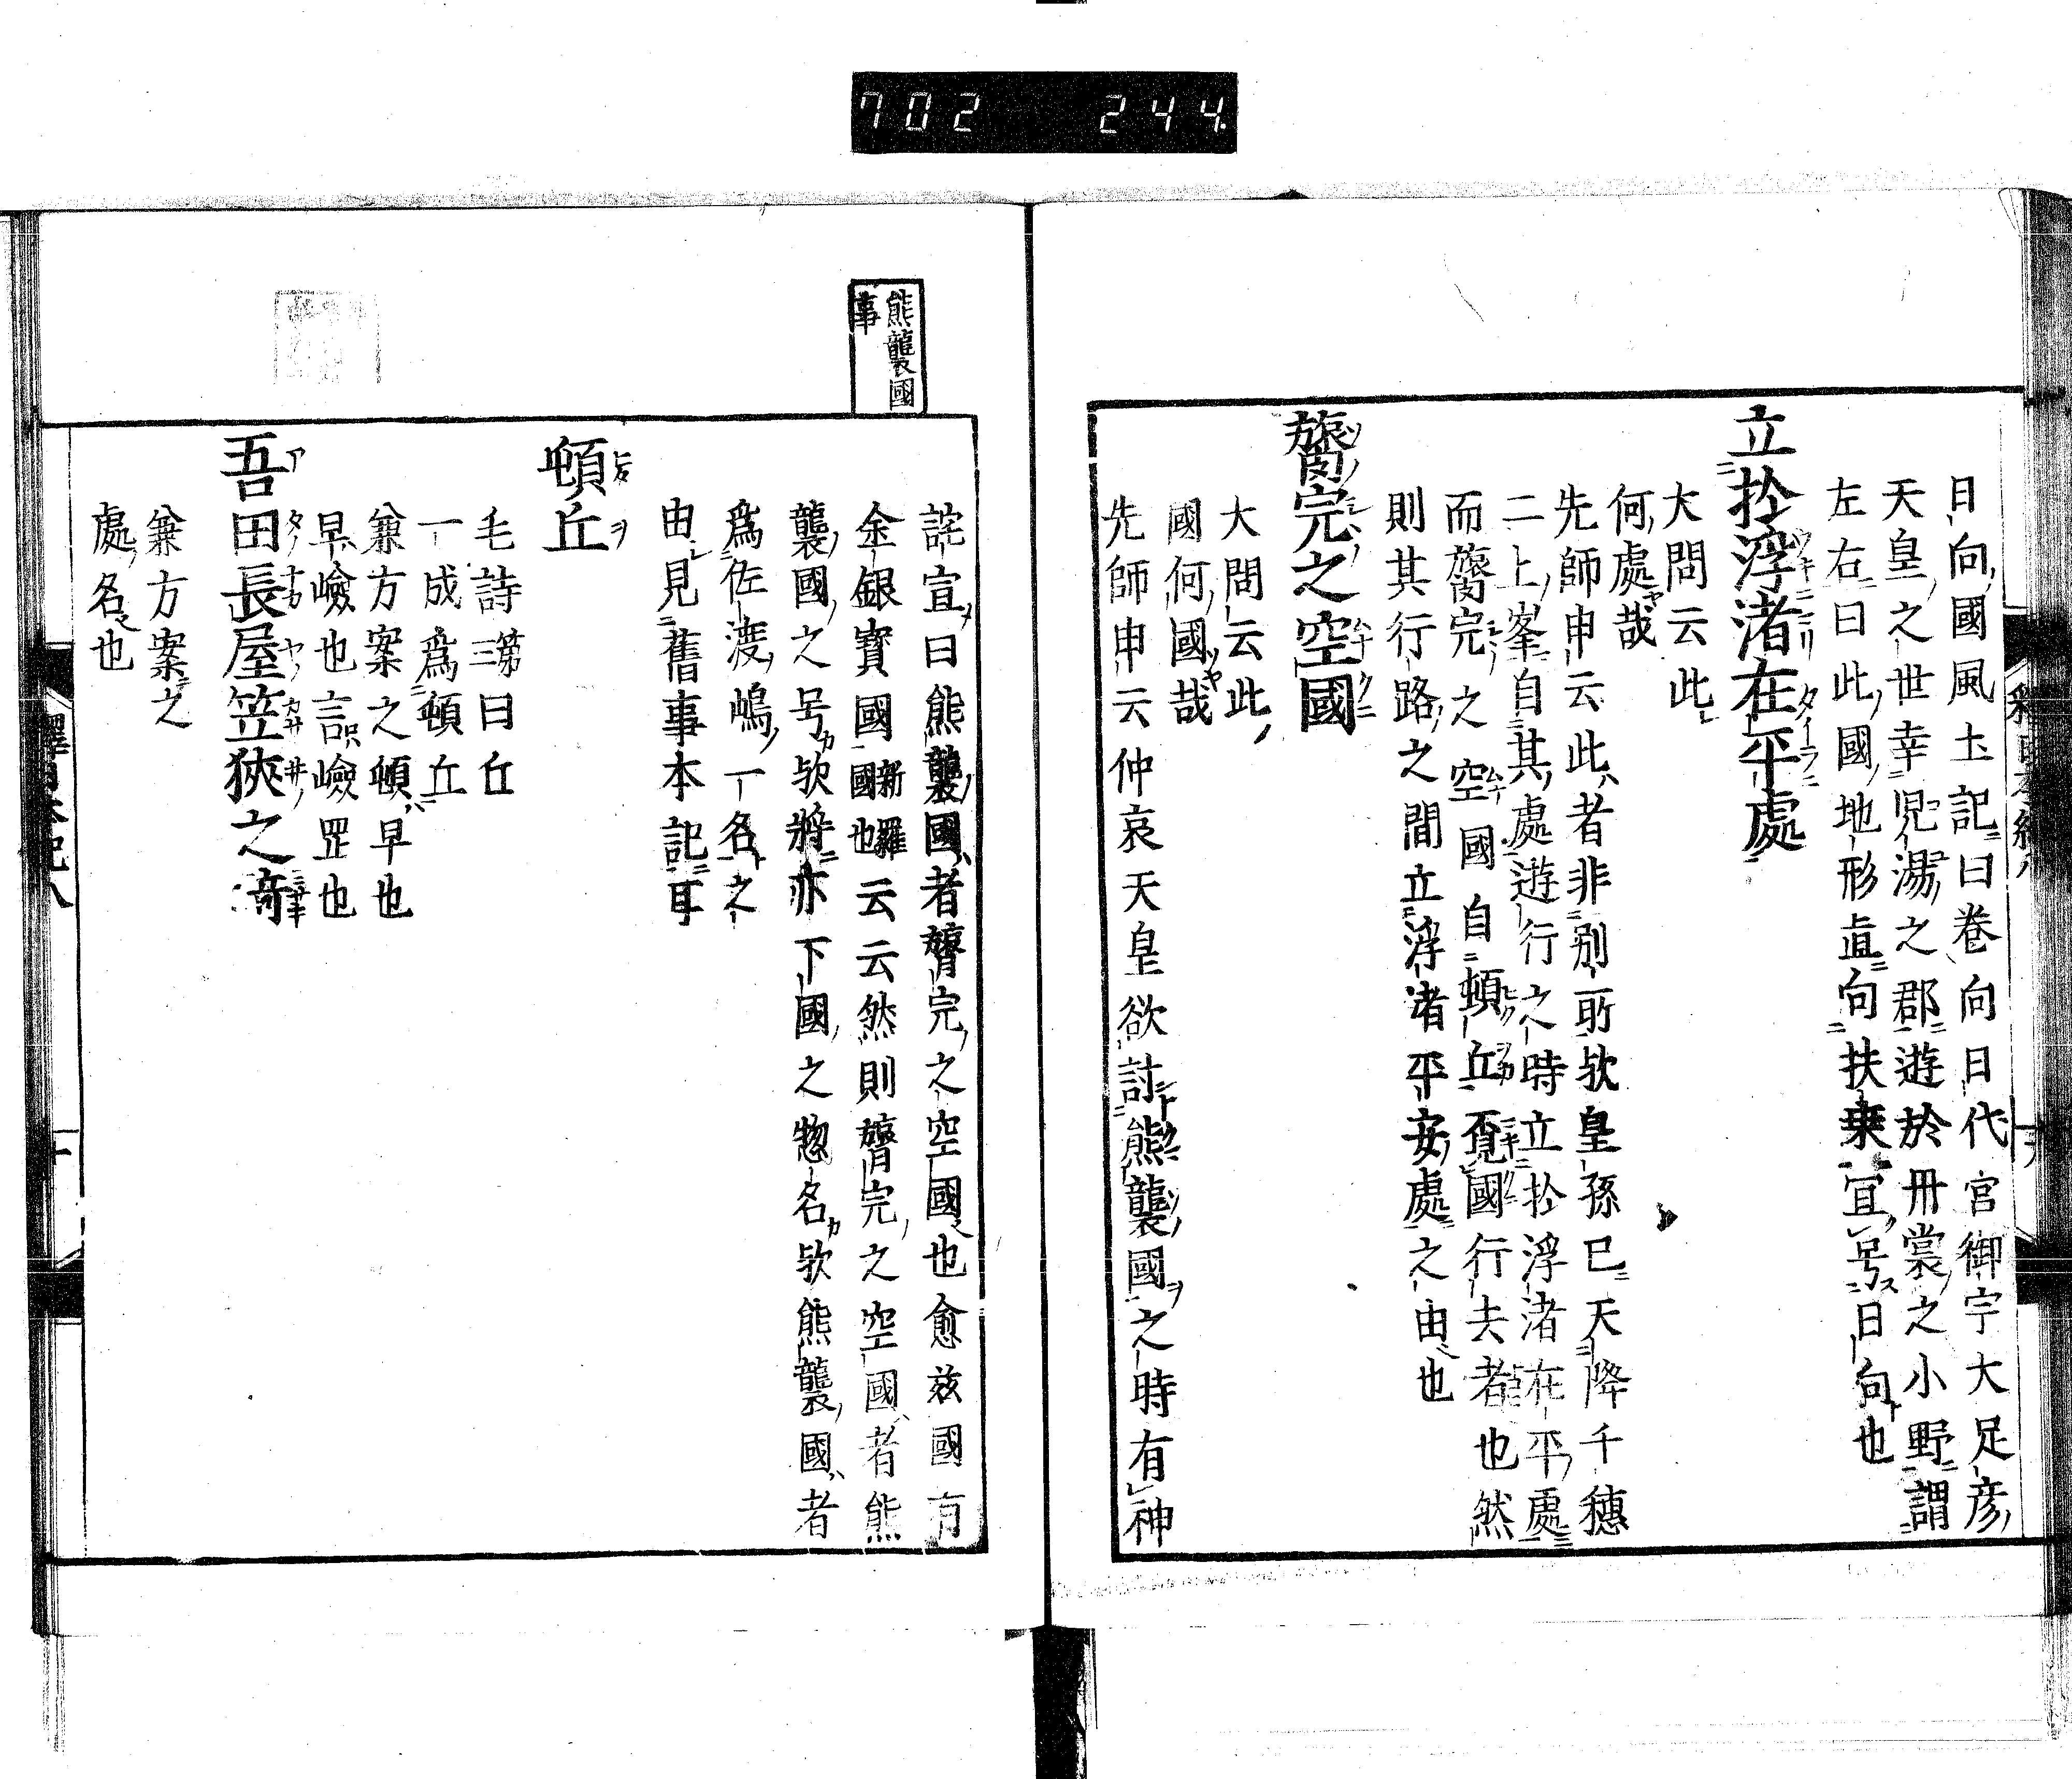 702 244
日向國風土記曰卷向日代宮御宇大足彦
天皇之世幸兒湯之郡遊於丹裳之小野謂
左右曰此國地形直向扶桒宜号日向也
立扵浮渚在平處
大問云此
何處哉
先師申云此者非别所欤皇孫已天降千穗
二上峯自其處遊行之時立扵浮渚在平處
而膂完之空國自頓丘覓國行去者也然
則其行路之間立浮渚平安處之由也
膂完之空國
大問云此
國何國哉
先師申云仲哀天皇欲討熊襲國之時有神
熊襲國
事
託宣曰熊襲國者膂完之空國也愈茲國有
金銀寳國新羅國也云云然則膂完之空國者熊
襲國之号欤將亦下國之惣名欤熊襲國者
爲佐渡嶋一名之
由見舊事本記耳
頓丘
毛詩第三曰丘
一成爲頓丘
兼方案之頓早也
早嶮也言嶮罡也
吾田長屋笠狹之﨑
兼方案之
處名也